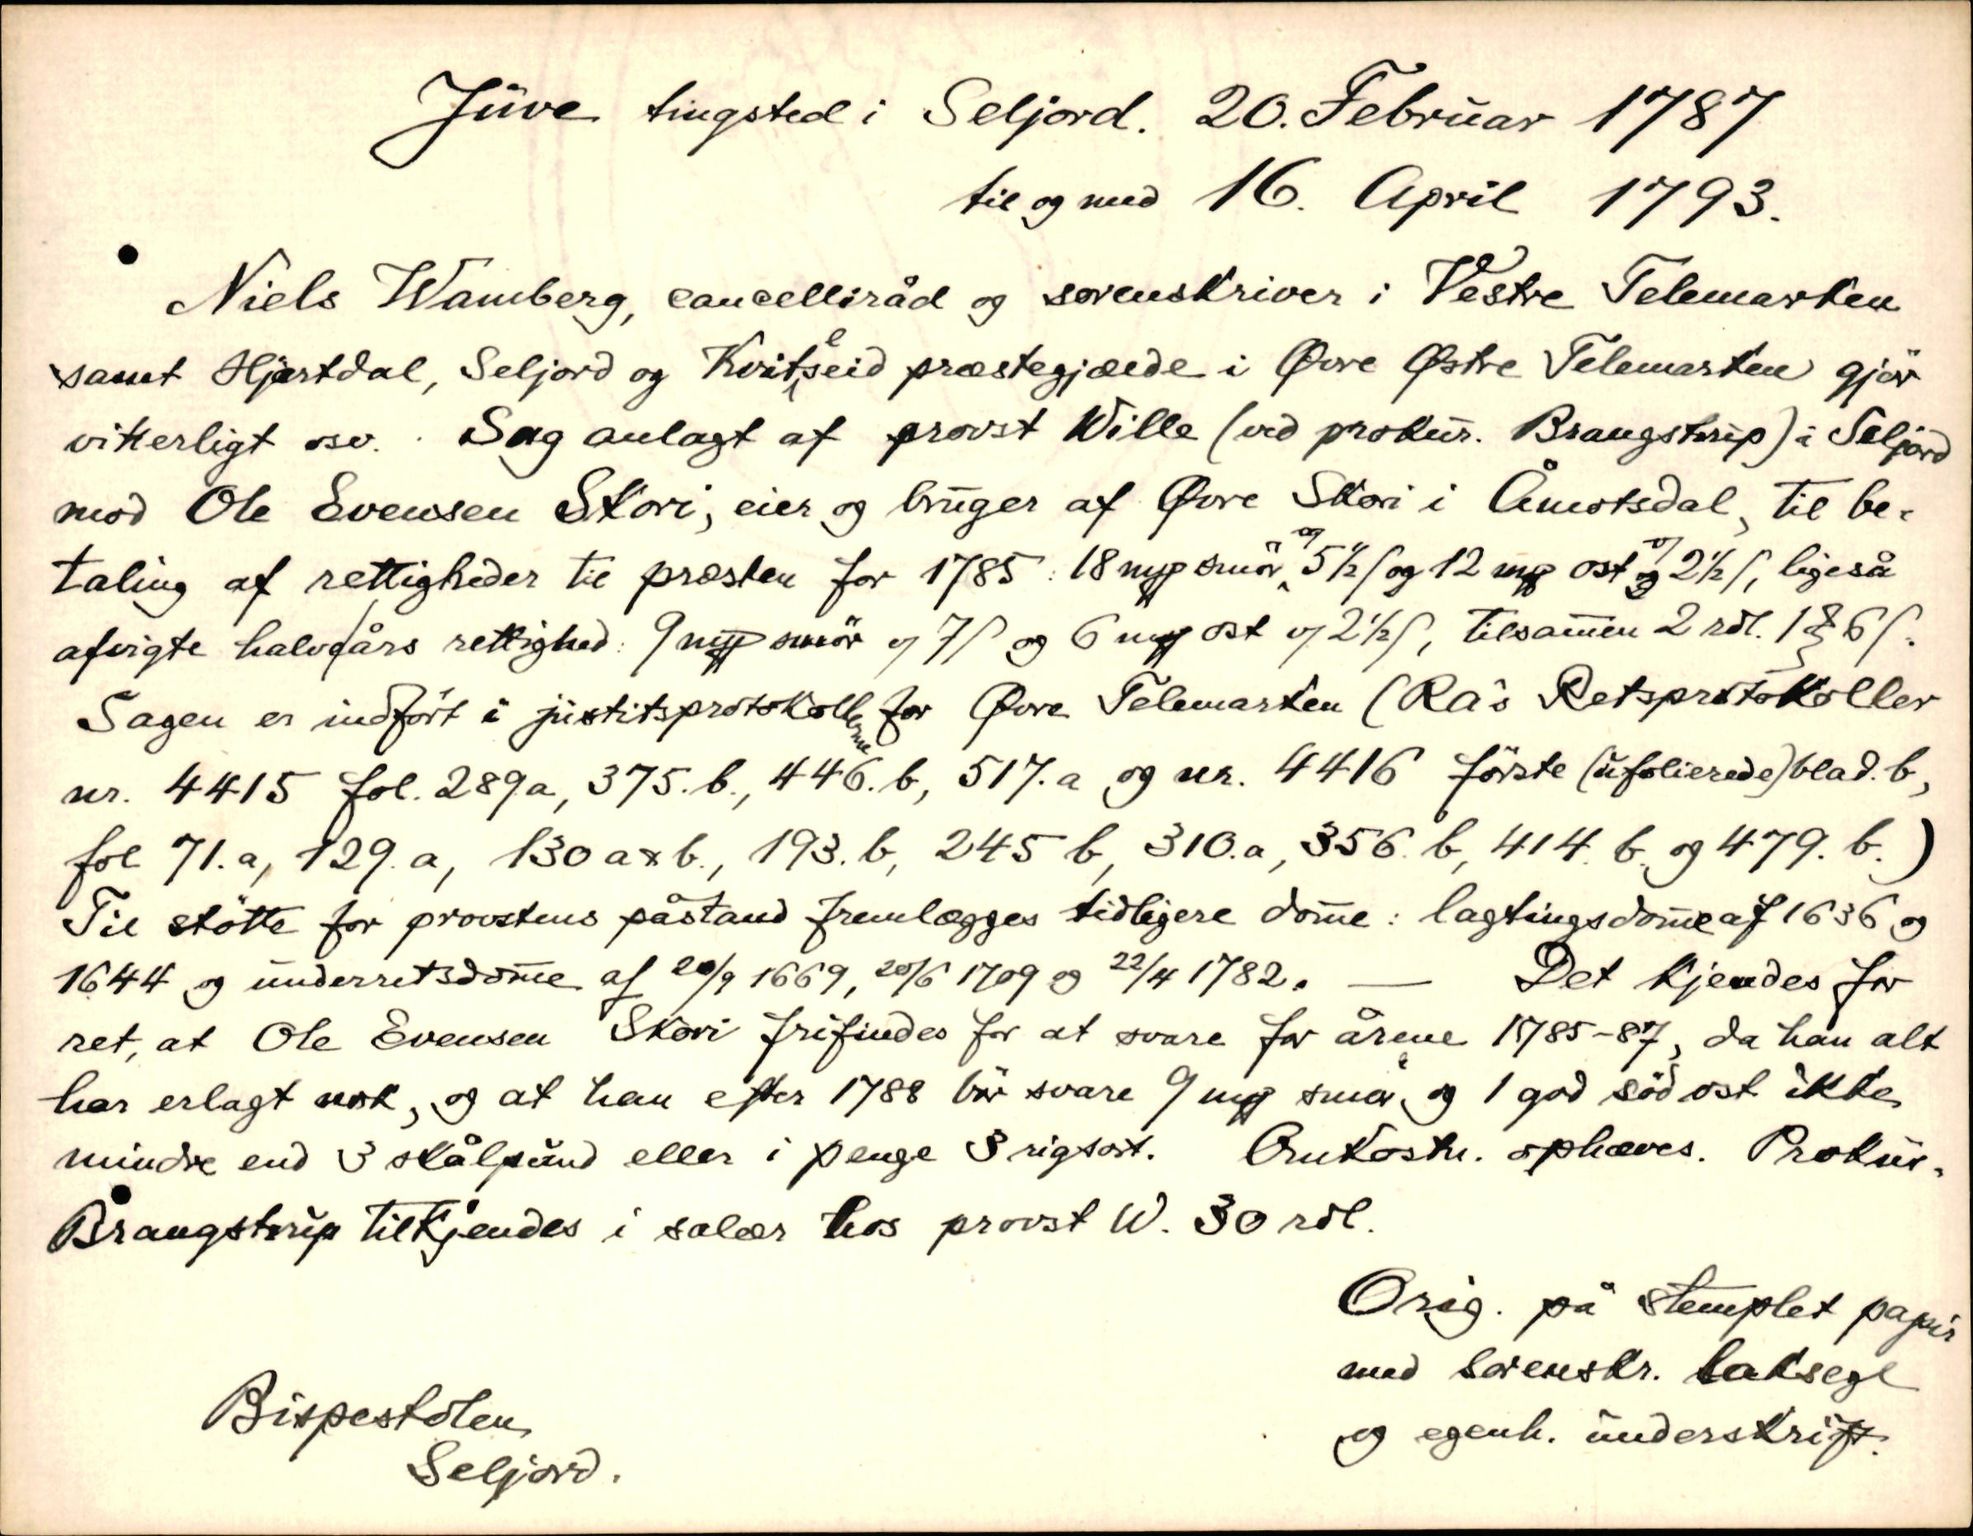 Jüve tingsted i Seljord. 20. Februar 1787
til og med 16. April 1793.
Niels Wamberg, cancelliråd og sorenskriver i Vestre Telemarken
samt Hjartdal, Seljord og Kviteseid præstegjælde i Øvre Østre Telemarken gjör
vitterligt osv. Sag anlagt af provst Wille (ved prokur. Brangstrup) i Seljord
mod Ole Evensen Skori, eier og bruger af Øvre Skori i Åmotsdal, til be-
taling af rettigheder til præsten for 1785: 18 mp smör og 5 1/2 ſ og 12 mp ost og 2 1/2 ſ, ligeså
afvigte halvårs rettighed: 9 mp smör og 7 ſ og 6 mp ost og 2 1/2 ſ, tilsam̄en 2 rdl. 1 ℥ 6 ſ.
Sagen er indfört i justitsprotokollerne for Øvre Telemarken (RA's Retsprotokoller
nr. 4415 fol. 289 a, 375. b., 446. b, 517. a og nr. 4416 förste (ufolierede) blad. b,
fol 71. a, 129. a, 130 a & b., 193. b, 245 b, 310. a, 356. b, 414. b. og 479. b.)
Til stötte for provstens påstand fremlægges tidligere dom̄e: lagtingsdom̄e af 1636 og
1644 og underretsdom̄e af 20/9 1669, 20/6 1709 og 22/4 1782. — Det kjendes for
ret, at Ole Evensen Skori frifindes for at svare for årene 1785-87, da han alt
har erlagt nok, og at han efter 1788 bör svare 9 mp smör og 1 god söd ost ikke
mindre end 3 skålpund eller i penge 3 rigsort. Omkostn. ophæves. Prokur.
Brangstrup tilkjendes i salær hos provst W. 30 rdl.
Orig. på stemplet papir
med sorenskr. laksegl
og egenh. underskrift.
Bispestolen
Seljord.